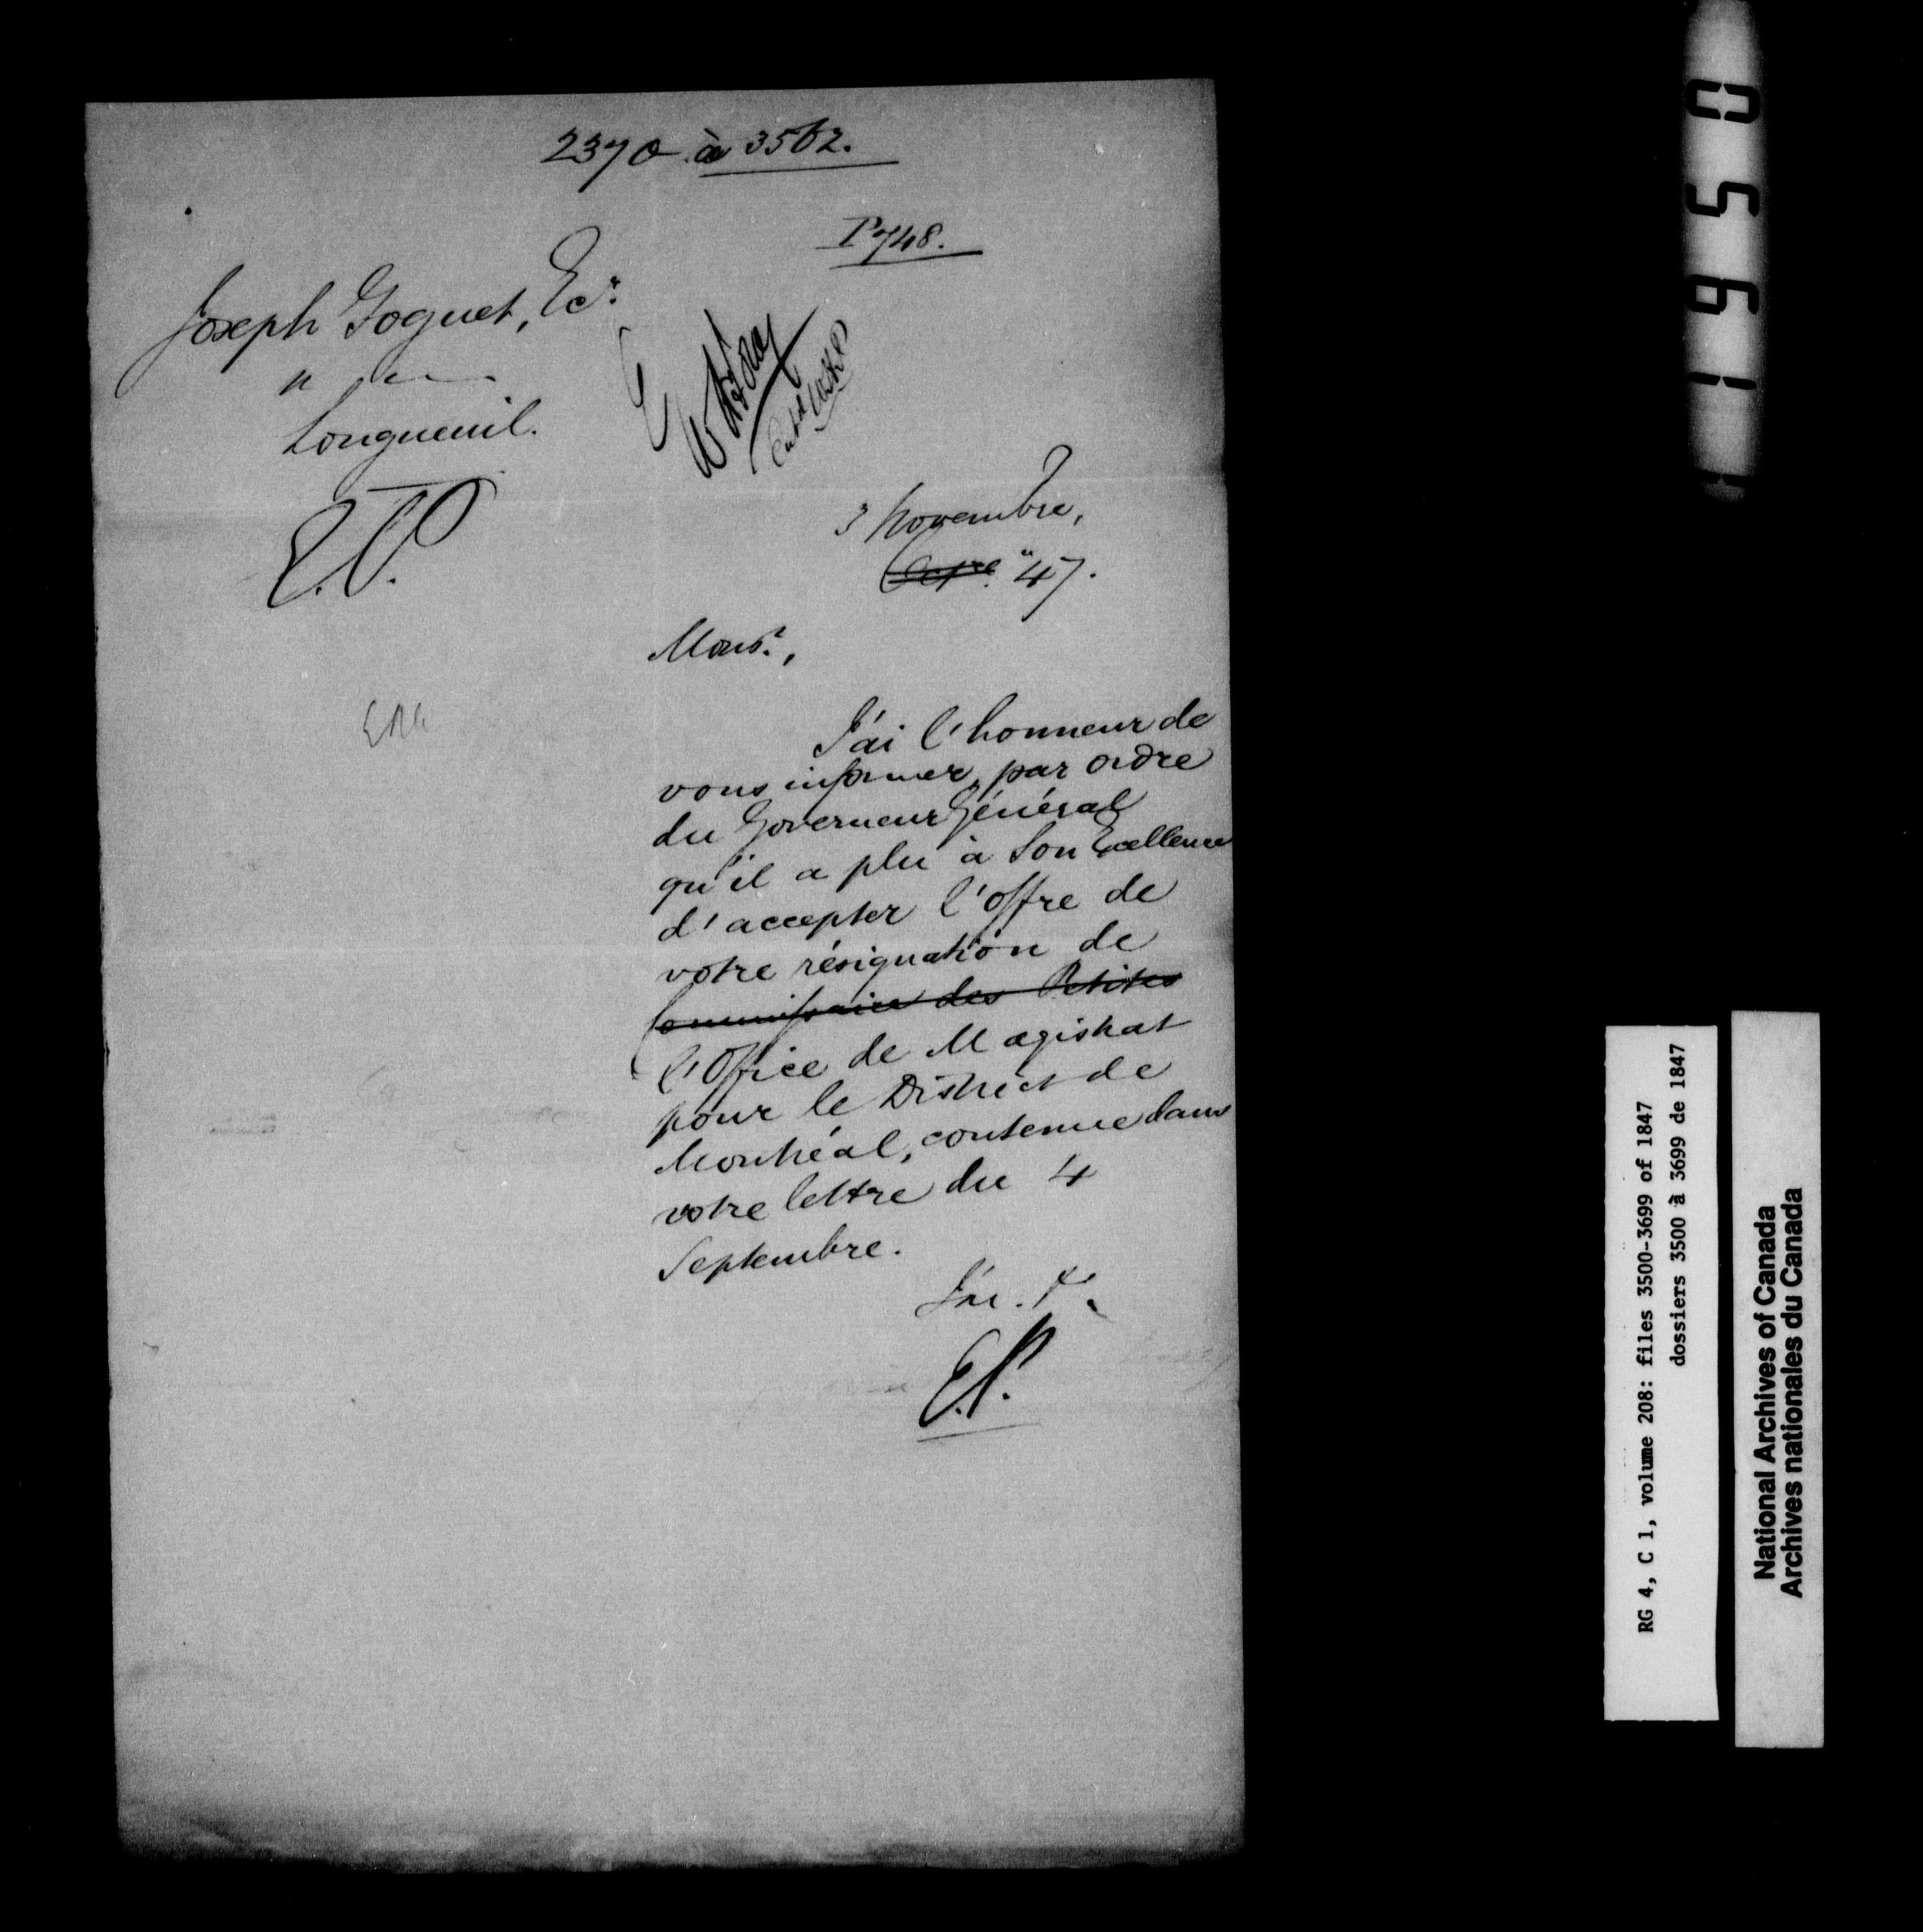 2370 à 3562.
P748.
Joseph Goguet, Ecr.
Longueuil.
3 Novembre,
Octre. "47.
Monsr.,
J'ai l'honneur de
vous informer, par ordre
du Gouverneur Général
qu'il a plu à Son Excellence
d'accepter l'offre de
votre résignation de
Commissaire des Petites
l'Office de Magistrat
pour le District de
Montréal, contenue dans
votre lettre du 4
Septembre.
J'ai.
E.P.
05961
RG 4, C 1, volume 208: files 3500-3699 of 1847
dossiers 3500 à 3699 de 1847
National Archives of Canada
Archives nationales du Canada